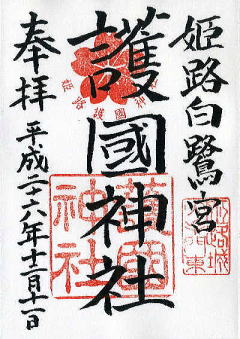 姫路白鷺宮
護國神社
奉拝
平成二十六年十二月十一日
姫路護國神社
護國神社